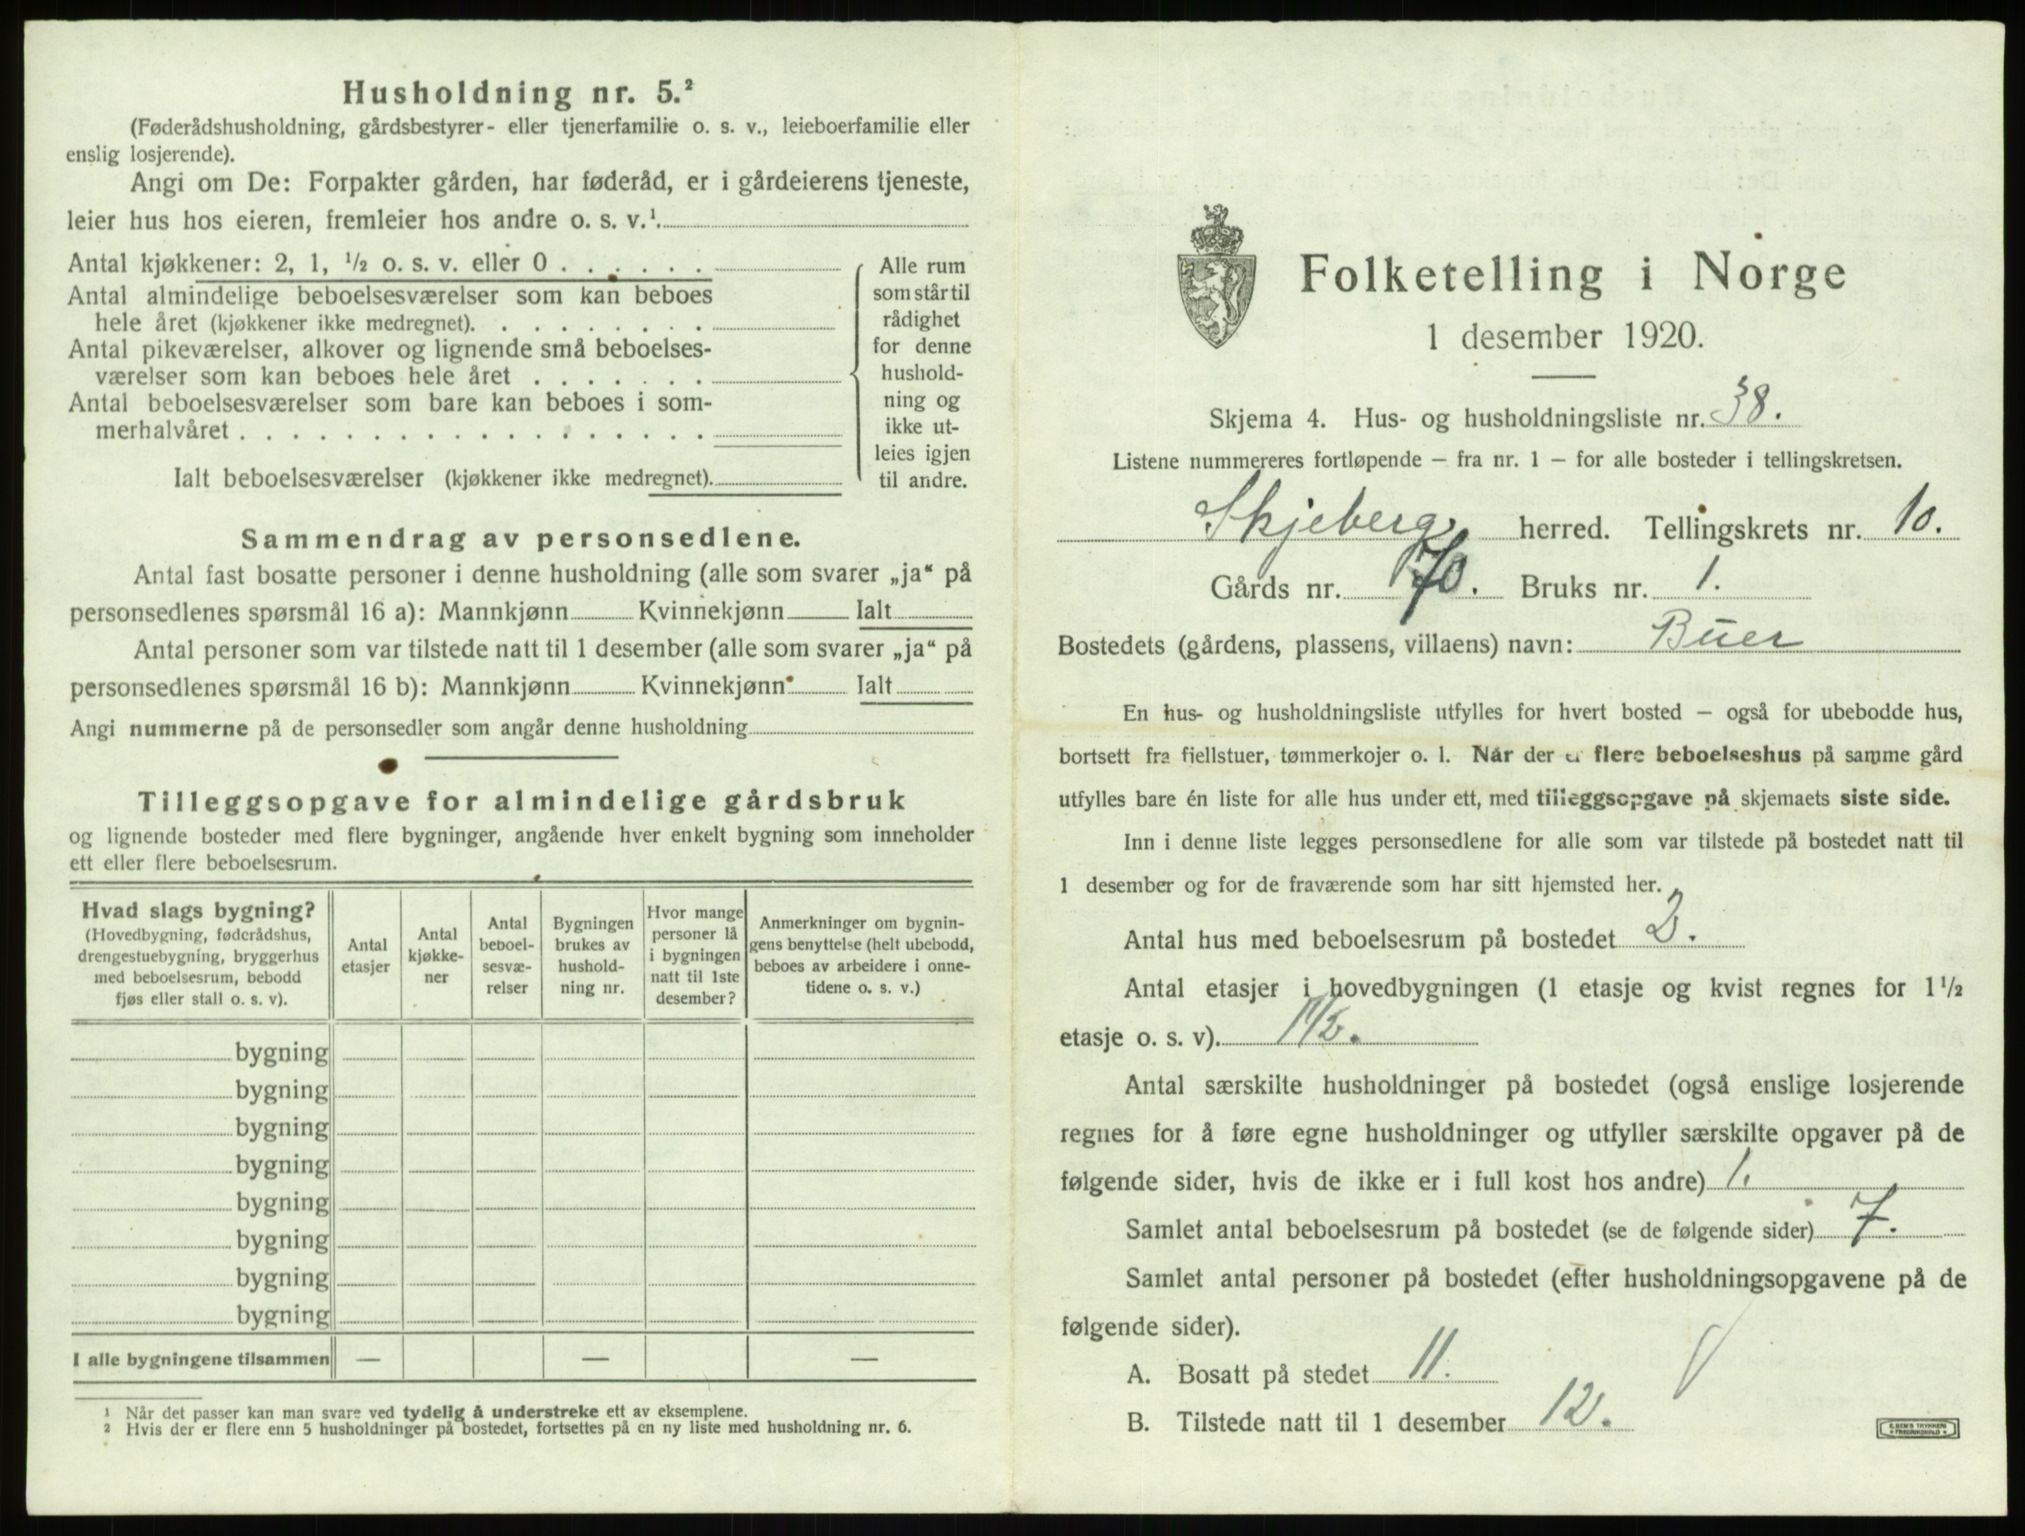 Husholdning nr. 5.²
(Føderådshusholdning, gårdsbestyrer- eller tjenerfamilie o. s. v., leieboerfamilie eller
enslig losjerende).
Angi om De: Forpakter gården, har føderåd, er i gårdeierens tjeneste,
leier hus hos eieren, fremleier hos andre o. s. v.¹.
Antal kjøkkener: 2, 1, ½ o. s. v. eller 0 . . . . . .
Antal almindelige beboelsesværelser som kan beboes
hele året (kjøkkener ikke medregnet). . . . . . . . .
Antal pikeværelser, alkover og lignende små beboelses-
værelser som kan beboes hele året . . . . . . .
Antal beboelsesværelser som bare kan beboes i som-
merhalvåret . . . . . . . . . . . . . . . . . .
Ialt beboelsesværelser (kjøkkener ikke medregnet).
Alle rum
som står til
rådighet
for denne
hushold-
ning og
ikke ut-
leies igjen
til andre.
Sammendrag av personsedlene.
Antal fast bosatte personer i denne husholdning (alle som svarer „ja“ på
personsedlenes spørsmål 16 a): Mannkjønn Kvinnekjønn Ialt
Antal personer som var tilstede natt til 1 desember (alle som svarer „ja“ på
personsedlenes spørsmål 16 b): Mannkjønn Kvinnekjønn Ialt
Angi nummerne på de personsedler som angår denne husholdning
Tilleggsopgave for almindelige gårdsbruk
og lignende bosteder med flere bygninger, angående hver enkelt bygning som inneholder
ett eller flere beboelsesrum.
Hvad slags bygning?
(Hovedbygning, føderådshus,
drengestuebygning, bryggerhus
med beboelsesrum, bebodd
fjøs eller stall o. s. v).
Antal
etasjer
Antal
kjøkke-
ner
Antal
beboel-
sesvæ-
relser
Bygningen
brukes av
hushold-
ning nr.
Hvor mange
personer lå
i bygningen
natt til 1ste
desember?
Anmerkninger om bygnin-
gens benyttelse (helt ubebodd,
beboes av arbeidere i onne-
tidene o. s. v.)
bygning
bygning
bygning
bygning
bygning
bygning
bygning
bygning
I alle bygningene tilsammen — — —
¹ Når det passer kan man svare ved tydelig å understreke ett av eksemplene.
² Hvis der er flere enn 5 husholdninger på bostedet, fortsettes på en ny liste med husholdning nr. 6.
Folketelling i Norge
1 desember 1920.
Skjema 4. Hus- og husholdningsliste nr. 38.
Listene nummereres fortløpende — fra nr. 1 — for alle bosteder i tellingskretsen.
Skjeberg herred. Tellingskrets nr. 10.
Gårds nr. 70. Bruks nr. 1.
Bostedets (gårdens, plassens, villaens) navn: Buer
En hus- og husholdningsliste utfylles for hvert bosted — også for ubebodde hus,
bortsett fra fjellstuer, tømmerkojer o. l. Når der er flere beboelseshus på samme gård
utfylles bare én liste for alle hus under ett, med tilleggsopgave på skjemaets siste side.
Inn i denne liste legges personsedlene for alle som var tilstede på bostedet natt til
1 desember og for de fraværende som har sitt hjemsted her.
Antal hus med beboelsesrum på bostedet 2.
Antal etasjer i hovedbygningen (1 etasje og kvist regnes for 1½
etasje o. s. v). 1½.
Antal særskilte husholdninger på bostedet (også enslige losjerende
regnes for å føre egne husholdninger og utfyller særskilte opgaver på de
følgende sider, hvis de ikke er i full kost hos andre) 1.
Samlet antal beboelsesrum på bostedet (se de følgende sider) 7.
Samlet antal personer på bostedet (efter husholdningsopgavene på de
følgende sider).
A. Bosatt på stedet 11.
B. Tilstede natt til 1 desember 12.